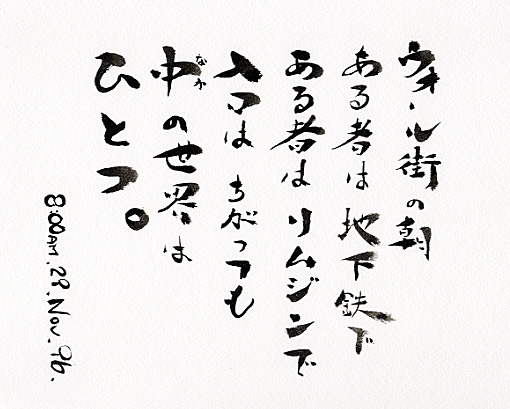 ウォール街の朝
ある者は地下鉄で
ある者はリムジンで
入口はちがっても
中の世界は
なか
ひとつ。
8:00AM. 29. Nov. 96.